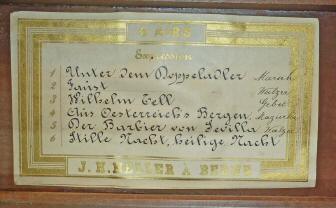 6 AIRS
Expression
1 Unter dem Doppeladler Marsch
2 Faust Walzer
3 Wilhelm Tell Gebet
4 Aus Oesterreichs Bergen, Mazurka
5 Der Barbier von Sevilla Walzer
6 Stille Nacht, heilige Nacht
J. H. HELLER A BERNE